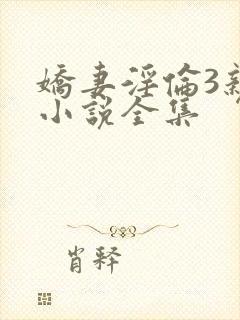 嬌妻淫倫3新
小說全集
肖釋